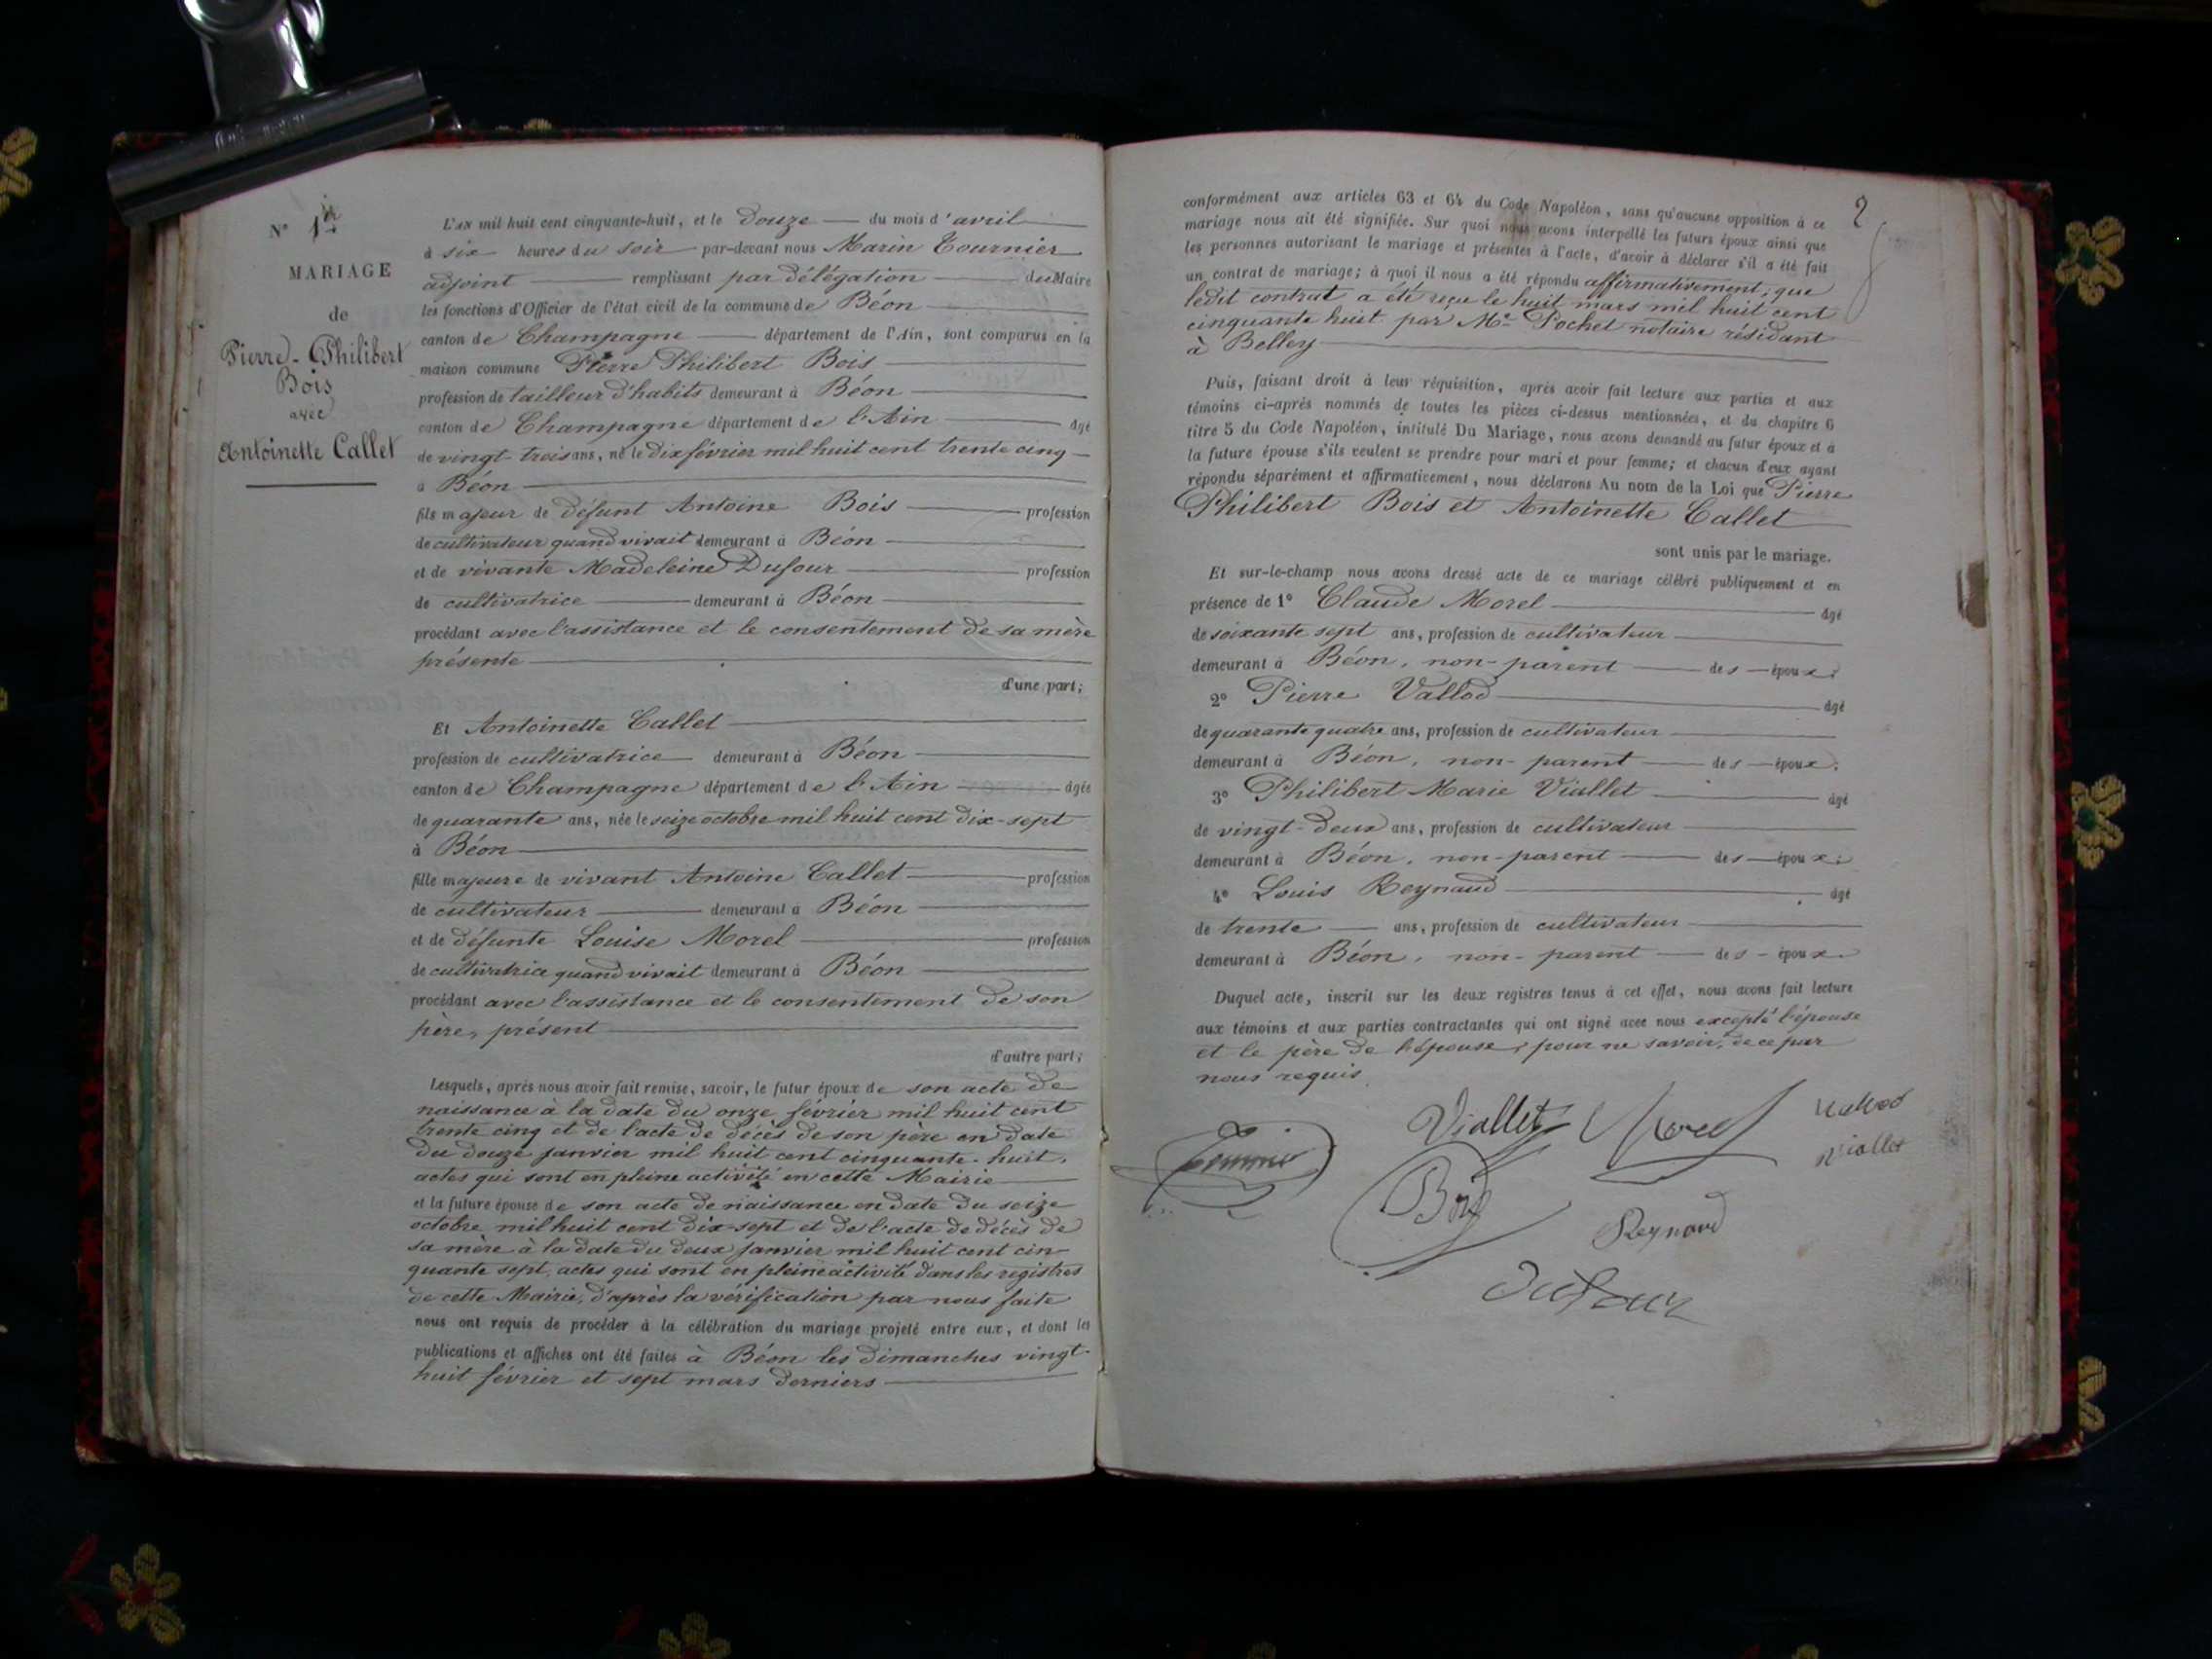 N° 1er
MARIAGE
de
Pierre-Philibert
Bois
avec
Antoinette Callet
L'AN mil huit cent cinquante-huit, et le Douze du mois d'avril
à six heures du soir par-devant nous Marin Tournier
adjoint remplissant par délégation du Maire
les fonctions d'Officier de l'état civil de la commune de Béon
canton de Champagne département de l'Ain, sont comparus en la
maison commune Pierre Philibert Bois
profession de tailleur d'habits demeurant à Béon
canton de Champagne département de l'Ain âgé
de vingt-trois ans, né le dix février mil huit cent trente cinq
à Béon
fils majeur de défunt Antoine Bois profession
de cultivateur quand vivait demeurant à Béon
et de vivante Madeleine Dufour profession
de cultivatrice demeurant à Béon
procédant avec l'assistance et le consentement de sa mère
présente
d'une part;
Et Antoinette Callet
profession de cultivatrice demeurant à Béon
canton de Champagne département de l'Ain âgée
de quarante ans, née le seize octobre mil huit cent dix-sept
à Béon
fille majeure de vivant Antoine Callet profession
de cultivateur demeurant à Béon
et de défunte Louise Morel profession
de cultivatrice quand vivait demeurant à Béon
procédant avec l'assistance et le consentement de son
père, présent
d'autre part;
Lesquels, après nous avoir fait remise, savoir, le futur époux de son acte de
naissance à la date du onze février mil huit cent
trente cinq et de l'acte de décès de son père en date
du douze janvier mil huit cent cinquante-huit,
actes qui sont en pleine activité en cette Mairie
et la future épouse de son acte de naissance en date du seize
octobre mil huit cent dix-sept et de l'acte de décès de
sa mère à la date du deux janvier mil huit cent cin-
quante sept, actes qui sont en pleine activité dans les registres
de cette Mairie, d'après la vérification par nous faite
nous ont requis de procéder à la célébration du mariage projeté entre eux, et dont les
publications et affiches ont été faites à Béon les dimanches vingt-
huit février et sept mars derniers
2
conformément aux articles 63 et 64 du Code Napoléon, sans qu'aucune opposition à ce
mariage nous ait été signifiée. Sur quoi nous avons interpellé les futurs époux ainsi que
les personnes autorisant le mariage et présentes à l'acte, d'avoir à déclarer s'il a été fait
un contrat de mariage; à quoi il nous a été répondu affirmativement; que
ledit contrat a été reçu le huit mars mil huit cent
cinquante huit par Me Pochet notaire résidant
à Belley
Puis, faisant droit à leur réquisition, après avoir fait lecture aux parties et aux
témoins ci-après nommés de toutes les pièces ci-dessus mentionnées, et du chapitre 6
titre 5 du Code Napoléon, intitulé Du Mariage, nous avons demandé au futur époux et à
la future épouse s'ils veulent se prendre pour mari et pour femme; et chacun d'eux ayant
répondu séparément et affirmativement, nous déclarons Au nom de la Loi que Pierre
Philibert Bois et Antoinette Callet
sont unis par le mariage.
Et sur-le-champ nous avons dressé acte de ce mariage célébré publiquement et en
présence de 1° Claude Morel âgé
de soixante sept ans, profession de cultivateur
demeurant à Béon, non-parent des époux;
2° Pierre Vallod âgé
de quarante quatre ans, profession de cultivateur
demeurant à Béon, non-parent des époux;
3° Philibert Marie Viallet âgé
de vingt-deux ans, profession de cultivateur
demeurant à Béon, non-parent des époux;
4° Louis Reynaud âgé
de trente ans, profession de cultivateur
demeurant à Béon, non-parent des époux.
Duquel acte, inscrit sur les deux registres tenus à cet effet, nous avons fait lecture
aux témoins et aux parties contractantes qui ont signé avec nous excepté l'épouse
et le père de l'épouse, pour ne savoir, de ce par
nous requis.
Viallet Morel Vallod
Tournier Viallet
Bois
Reynaud
Dufour